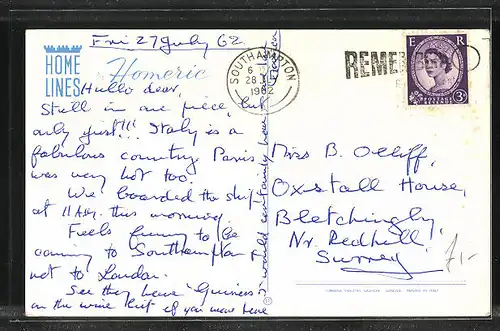 Fri 27 July 62.
HOME
LINES
Homeric
Hullo dear,
Still in one piece, but
only just!!! Italy is a
fabulous country Paris
was very hot too.
We boarded the ship
at 11 AM. this morning.
Feels funny to be
coming to Southampton &
not to London.
See they have 'Guiness'
on the wine list if you were here
would
SOUTHAMPTON
6
28 JLY
1962
REME
E R
POSTAGE
REVENUE
3D
Miss B. Olliff,
Oxstall House,
Bletchingly,
Nr. Redhill
Surrey
7/-